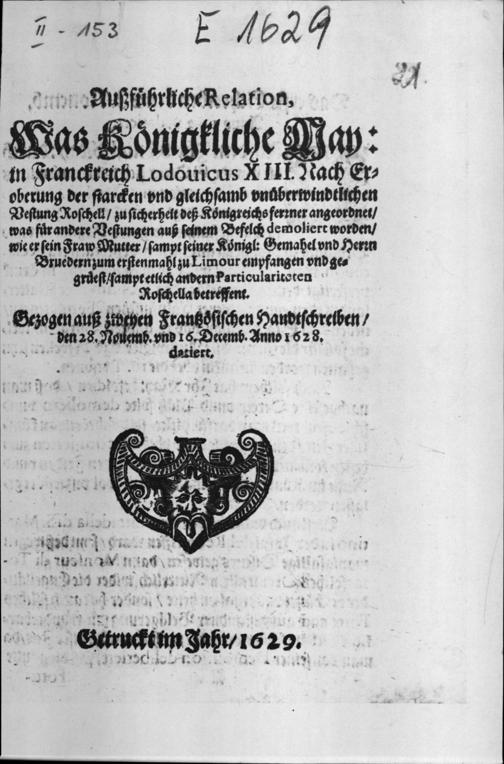 II - 153
E 1629
21.
Außführliche Relation,
Was Königkliche May:
in Franckreich Lodouicus XIII. Nach Er-
oberung der starcken vnd gleichsamb vnüberwindtlichen
Vestung Roschell / zu sicherheit deß Königreichs ferrner angeordnet /
was für andere Vestungen auß seinem Befelch demoliert worden /
wie er sein Fraw Mutter / sampt seiner Königl: Gemahel vnd Herrn
Bruedern zum erstenmahl zu Limour empfangen vnd ge-
grüest / sampt etlich andern Particulariteten
Roschella betreffent.
Gezogen auß zweyen Frantzösischen Handtschreiben /
den 28. Nouemb. vnd 16. Decemb. Anno 1628.
datiert.
Getruckt im Jahr / 1629.